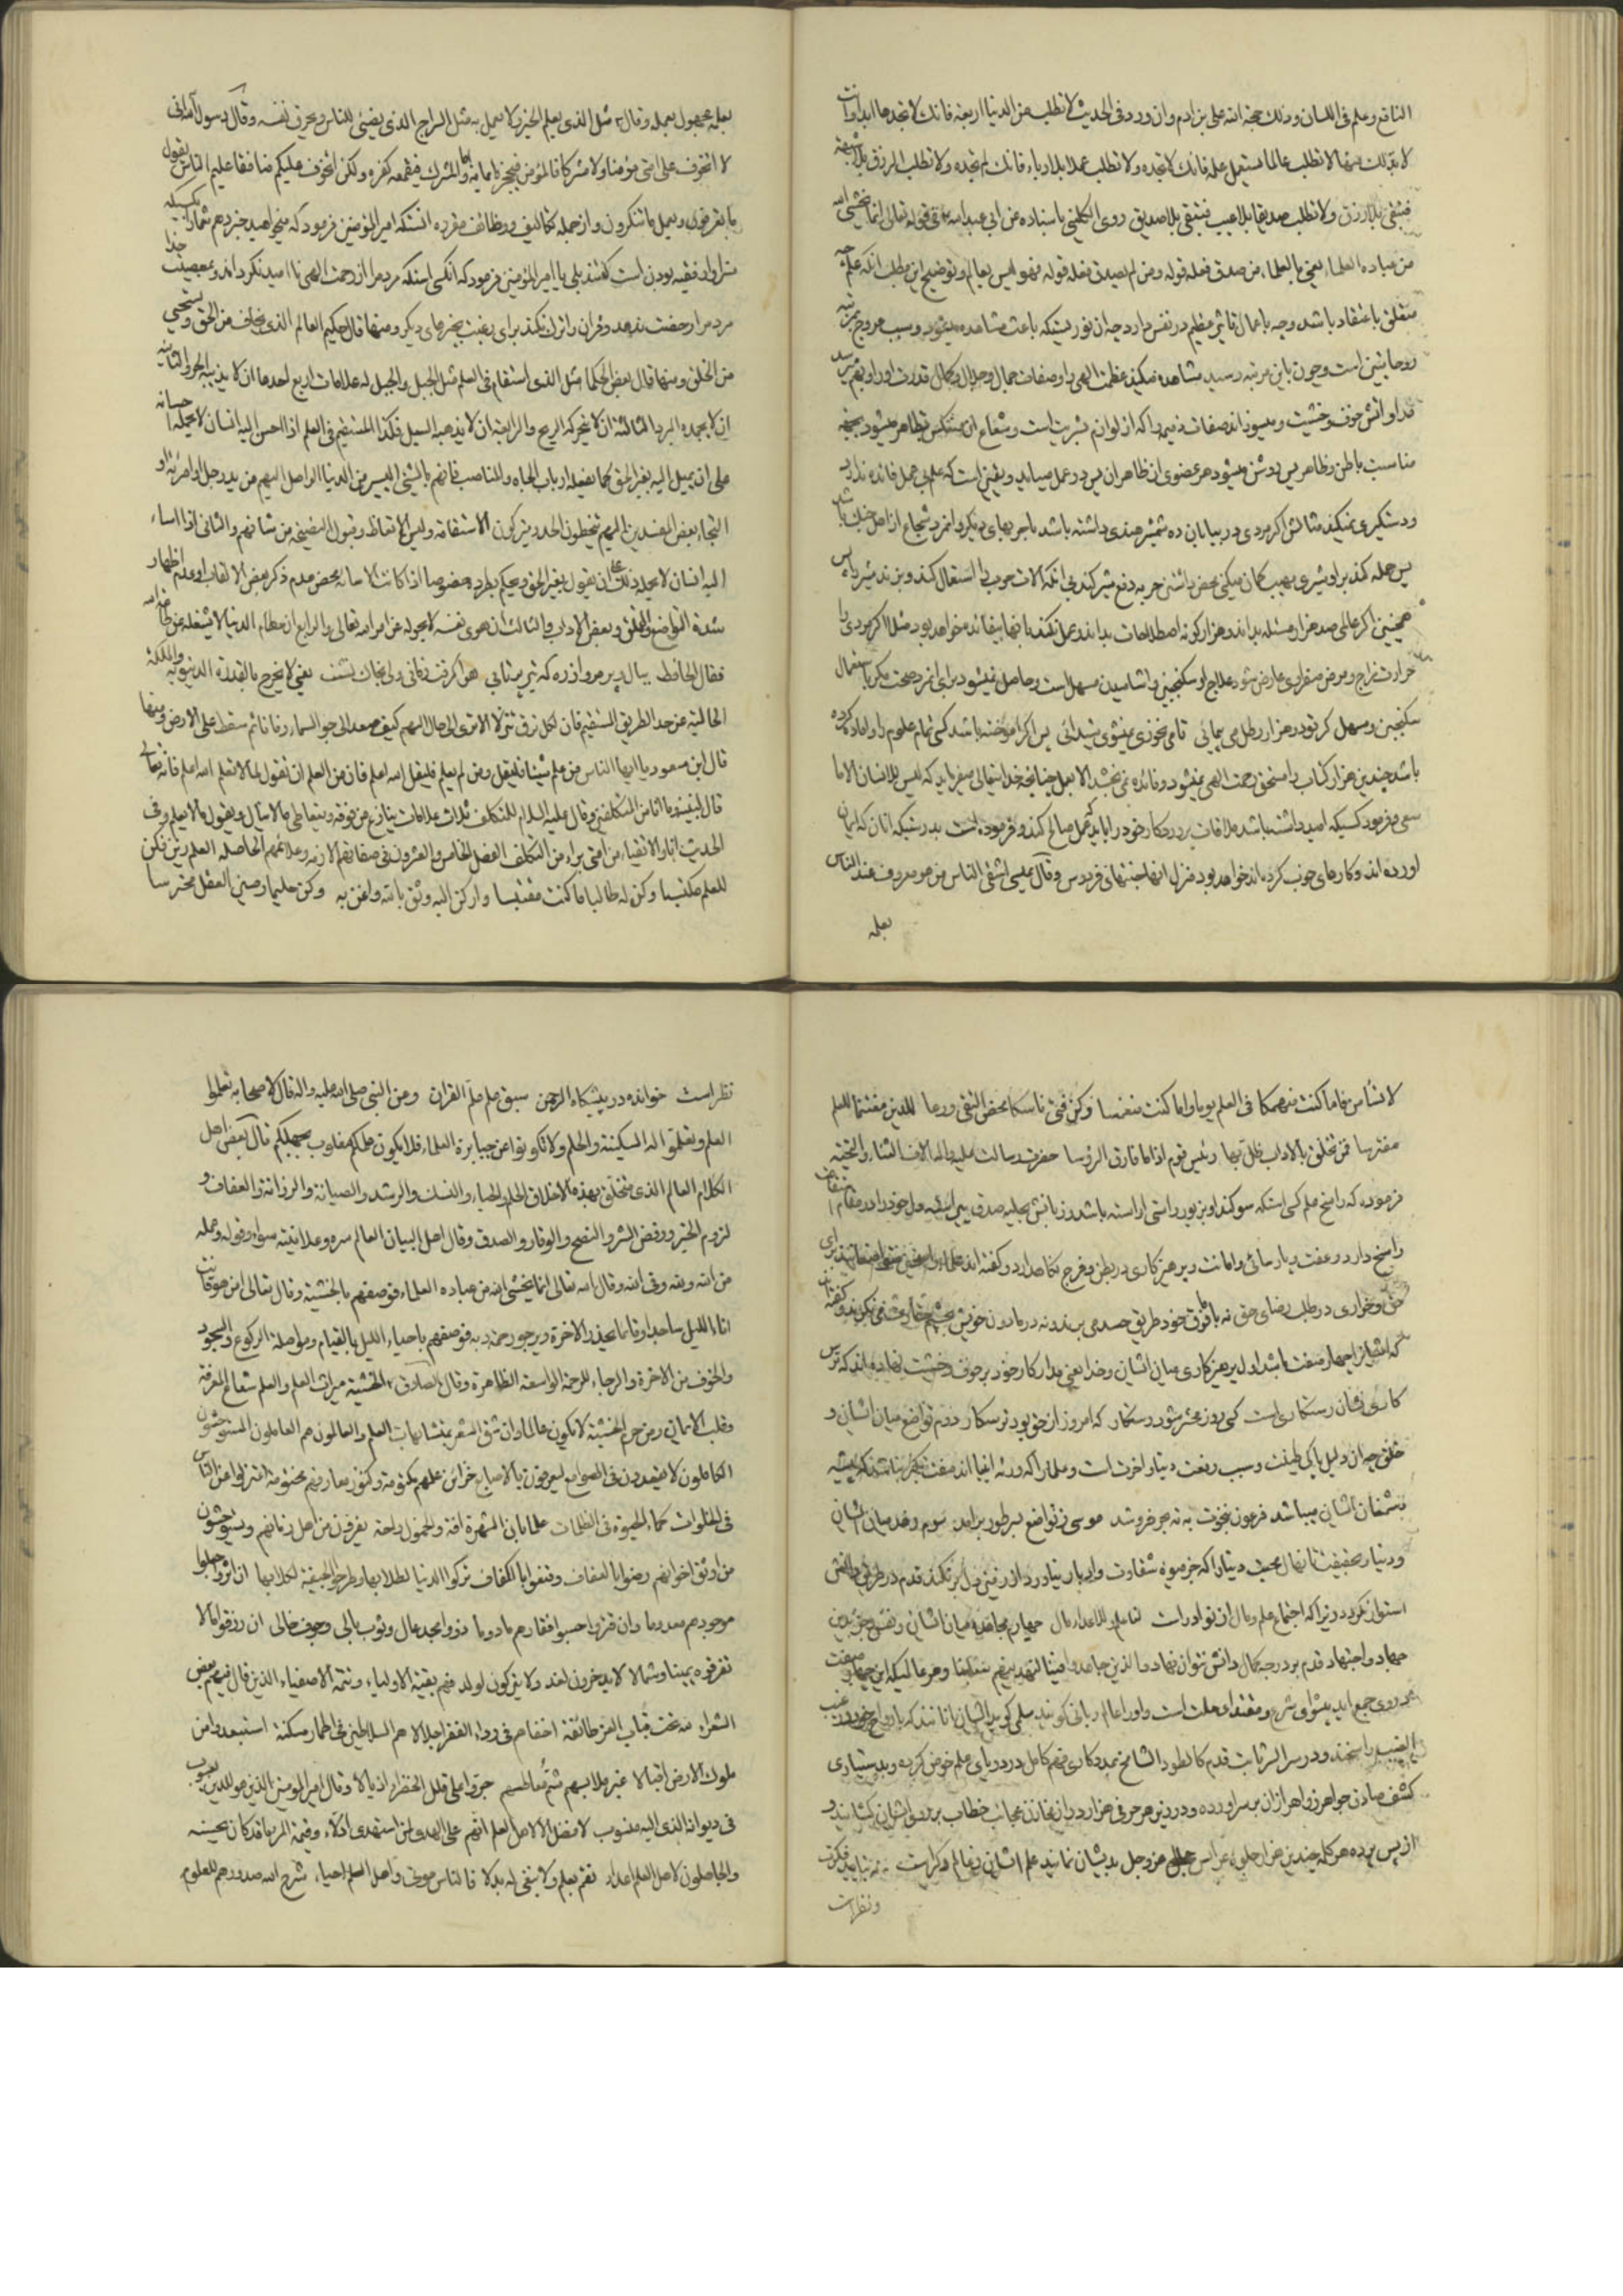 النافع وعلم فی اللسان وذلک حجة الله علی بن ادم وان ورد فی الحدیث لا تطلب من الدنیا اربعة فانک لا تجدها ابدا وانت
لا بد لک منها لا تطلب عالما مستعمل علمه فانک لا تجده ولا تطلب عملا بلا ریاء فانک لم تجده ولا تطلب الرزق بلا شبهة
فتبقی بلا رزق ولا تطلب صدیقا بلا عیب فتبقی بلا صدیق روی الکلینی باسناده عن ابی عبد الله فی قوله تعالی انما یخشی الله
من عباده العلماء یعنی بالعلماء من صدق فعله قوله ومن لم یصدق فعله قوله فهو لیس بعالم وتوضیح این مطلب انکه علم چه
متعلق باعتقاد باشد وچه باعمال تاثیر عظیم در نفس دارد چه ان نوریستکه باعث مشاهده میشود وسبب عروج بمرتبه
روحانیین است وچون باین مرتبه رسید مشاهده میکند عظمت الهی را وصفات جمال وجلال وکمال قدرت او را وبهم میرسد
در او اتش خوف وخشیت ومیسوزاند صفات ذمیمه را که از لوازم بشریت است وشعاع ان منعکس بظاهر میشود بجهة
مناسبت باطن وظاهر پس روشن میشود هر عضوی از ظاهر ان پس در عمل میاید ویقین است که علم بی عمل فائده ندارد
ودستگیری نمیکند مثالش اگر مردی در بیابان ده شمشیر هندی داشته باشد با حربهای دیگر وانمرد شجاع از اهل جنک باشد
پس حمله کند بر او شیری مهیب گمان میکنی محض داشتن حربه دفع شیر کند بی انکه الات حرب را استعمال کند وبزند شیر را پس
همچنین اگر عالمی صد هزار مسئله بداند وهزار گونه اصطلاحات بداند وعمل نکند بانها بیفائده خواهد بود مثلا اگر مردی را
حرارت مزاج ومرض صفراوی عارض شود علاج او سکنجبین واشامیدن مسهل است وحاصل نمیشود برای انمرد صحت مگر باستعمال
سکنجبین ومسهل گر تو در هزار رطل می پیمائی تا می نخوری نمیشوی شیدائی پس اگر اموخته باشد کسی تمام علوم را واماده کرده
باشد چندین هزار کتاب را مستحق رحمت الهی نمیشود وفائده نمی بخشد الا بعمل چنانچه خدایتعالی میفرماید که لیس للانسان الا ما
سعی میفرمود کسیکه امید داشته باشد ملاقات پروردگار خود را باید که عمل صالح کند وفرموده است بدرستیکه انان که ایمان
اورده اند وکارهای خوب کرده اند خواهد بود منزل انها جنتهای فردوس وقال عیسی اشقی الناس من هو معروف عند الناس
بعلمه
بعلمه مجهول بعمله وقال مثل الذی یعلم الخیر ولا یعمل به مثل السراج الذی یضیئ للناس ویحرق نفسه وقال رسول الله انی
لا اتخوف علی امتی مؤمنا ولا مشرکا فالمؤمن فیحجزه ایمانه واما المشرک فیقمعه کفره ولکن اتخوف علیکم منافقا علیم اللسان یقول
ما یعرفون ویعمل ما تنکرون واز جمله تکالیف ووظائف مقرره انستکه امیر المؤمنین فرمود که میخواهید خبر دهم شما را بکسیکه
سزاوار فقیه بودن است گفتند بلی یا امیر المؤمنین فرمود که انکسی استکه مردم را از رحمت الهی نا امید نگرداند وبمعصیت خدا
مردم را رخصت ندهد وقران را ترک نکند برای رغبت بچیزهای دیگر ومنها قال حکیم العالم الذی یخاف من الحق ویستحیی
من الخلق ومنها قال بعض الحکما مثل الذی استقام فی العلم مثل الجبل والجبل له علامات اربع احدها ان لا یذیبه الحر والثانیه
ان لا یجمده البرد الثالثة ان لا تحرکه الریح والرابعة ان لا یذهبه السیل فکذا المستقیم فی العلم اذا احسن الیه انسان لا یحمله احسانه
علی ان یمیل الیه بغیر الحق کما یفعله ارباب الجاه والمناصب فانهم بالشیئ الیسیر من الدنیا الواصل الیهم من ید رجل او امرئة او
التجاء بعض المفسدین الیهم یتخطون الحد ویترکون الاستقامة ولیس الاتعاظ وقبول النصیحة من شانهم والثانی اذا اساء
الیه انسان لا یحمله ذلک علی ان یقول بغیر الحق ویحکم بطرده خصوصا اذا کانت الاسائة محض عدم ذکر بعض الالقاب او عدم اظهار
شدة التواضع والتملق وبعض الاداب والثالث ان هوی نفسه لا یحوله عن امر الله تعالی والرابع ان حطام الدنیا لا یشغله عن طاعة الله
فقال الحافظ ببال وپر مرو از ره که تیر پرتابی هوا گرفت زمانی ولی بخاک نشست یعنی لا یخرج بالقدرة الدنیویه والملکة
الحالیة عن حد الطریق المستقیم فان لکل ترق تنزلا الا تری الی حال السهم کیف صعد الی جو السماء زمانا ثم سقط علی الارض ومنها
قال ابن مسعود یا ایها الناس من علم شیئا فلیقل ومن لم یعلم فلیقل الله اعلم فان من العلم ان تقول لما لا تعلم الله اعلم فانه تعالی
قال لنبیه وما انا من المتکلفین وقال علیه السلام للمتکلف ثلاث علامات ینازع من فوقه ویتعاطی ما لا ینال ویقول ما لا یعلم وفی
الحدیث انا والاتقیاء من امتی براء من التکلف الفصل الخامس والعشرون فی صفاتهم الازمه وعلائمهم الحاصله العلم زین فکن
للعلم مکتسبا وکن له طالبا ما کنت مقتبسا وارکن الیه وثق بالله واغن به وکن حلیما رصین العقل محترسا
لا تسأمن فاما کنت منهمکا فی العلم یوما واما کنت منغمسا وکن فتی ناسکا محض التقی ورعا للدین مغتنما للعلم
مفترسا فمن تخلق بالاداب ظل بها رئیس قوم اذا ما فارق الرؤسا حضرت رسالت علیه واله الاف الثناء والتحیة
فرموده که راسخ علم کسی استکه سوگند او بزیور راستی اراسته باشد وزبانش بحلیه صدق پیراسته ودل خود را در مقام استقامت
راسخ دارد وعفت وپارسائی وامانت وپرهیزکاری در بطن وفرج نگاهدارد وگفته اند علماء راسخین متواضعانند برای
حق وخواری در طلب رضای حق نه با فوق خود طریق حسد می برند ونه در مادون خویش بچشم حقارت می نگرند وگفته اند
که امتیاز چهار صفت باشد اول پرهیزکاری میان ایشان وخدا یعنی مدار کار خود بر خوف وخشیت نهاده اند که ترس
کاری نشان رستکاری است کسی روز محشر شود رستگار که امروز از حق بود ترسکار دوم تواضع میان ایشان و
خلق چه ان دلیل پاکی طینت وسبب رفعت دنیا واخرت است وعلما را که ورثه انبیا اند صفت تکبر نباشد که پیشه
دشمنان ایشان میباشد فرعون بنخوت به ته بحر فرو شد موسی ز تواضع بسر طور برامد سوم زهد میان ایشان
ودنیا بحقیقت نهال محبت دنیا را که جز میوه شقاوت وادبار نیارد از زمین دل بر نکند قدم در طریق دانش
استوار نگردد زیرا که اجتماع علم ومال از نوادرات لنا علم وللاعداء مال چهارم مجاهده میان ایشان ونفس وجز بدین
جهاد واجتهاد قدم بر درجه کمال دانش نتوان نهاد والذین جاهدوا فینا لنهدینهم سبلنا وهر عالمیکه این چهار صفت
در وی جمع اید پیشوای شرع ومقتدای ملت است واورا عالم ربانی گویند سلمی گوید ایشان بانانند که بارواح خود در غیب
الغیب راسخند ودر سر السر ثابت قدم کالطود الشامخ بمددکاری فهم کامل در دریای علم خوض کرده وبدستیاری
کشف صادق جواهر زواهر از ان بر سر اورده ودر زیر هر حرفی هزار در از مخازن عجائب خطاب بر روی ایشان کشایند و
از پس پرده هر کلمه چندین هزار جلوه عرایس عز وجل بدیشان نمایند علم ایشان ز عالم دگر است
ونظر است
نظر است خوانده در پیشگاه الرحمن سبق علم علّم القرآن ومن النبی صلی الله علیه واله قال لاصحابه تعلموا
العلم وتعلموا له السکینة والحلم ولا تکونوا من جبابرة العلماء فلا یکون علمکم مغلوب بجهلکم قال بعض اهل
الکلام العالم الذی متخلق بهذه الاخلاق الحلم والحیاء والنسک والرشد والصیانة والرزانة والعفاف و
لزوم الخیر ورفض الشر والنصح والوقار والصدق وقال اهل البیان العالم سره وعلانیته سواء وقوله وعمله
من الله وبه وفی الله وقال الله تعالی انما یخشی الله من عباده العلماء فوصفهم بالخشیة وقال تعالی امن هو قانت
اناء اللیل ساجدا وقائما یحذر الاخرة ویرجو رحمة ربه فوصفهم باحیاء اللیل بالقیام ومواصلة الرکوع والسجود
والخوف من الاخرة والرجاء للرحمة الواسعة الظاهرة وقال الصادق الخشیة میراث العلم والعلم شعاع المعرفة
وقلب الایمان ومن حرم الخشیة لا یکون عالما وان شق الشعر بمتشابهات العلم والعالمون هم العاملون المستوحشون
الکاملون لا یقعدون فی الصوامع لیعرفون بالاصابع خزائن علمهم مکتومة وکنوز معارفهم مختومة اعتزلوا عن الناس
فی الخلوات کماء الحیوة فی الظلمات علما بان الشهرة افة والخمول راحة یفرون من اهل زمانهم ویستوحشون
من اوثق اخوانهم رضوا بالعفاف وقنعوا بالکفاف ترکوا الدنیا لطلابها وطرحوا الجیفة لکلابها ان اثروا جعلوا
موجودهم معدوما وان قتروا حسبوا افتقارهم مأدوما ذووا مجد عال وثوب بالی وجوف خالی ان رزقوا مالا
تفرقوه یمینا وشمالا لا یدخرون لغد ولا یترکون لولد فهم بقیة الاولیاء وتتمة الاصفیاء الذین قال فیهم بعض
الشعراء لله تحت قباب العز طائفة اخفاهم فی رداء الفقر اجلالا هم السلاطین فی اطمار مسکنة استعبدوا من
ملوک الارض اقبالا غبر ملابسهم شم معاطسهم جروا علی قلل الخضراء اذیالا وقال امیر المؤمنین الذی هو للدین یعسوب
فی دیوانه الذی الیه منسوب لا فضل الا لاهل العلم انهم علی الهدی لمن استهدی ادلاء وقیمة المرء ما قد کان یحسنه
والجاهلون لاهل العلم اعداء فقم بعلم ولا تبغی له بدلا فالناس موتی واهل العلم احیاء شرح الله صدورهم للعلوم